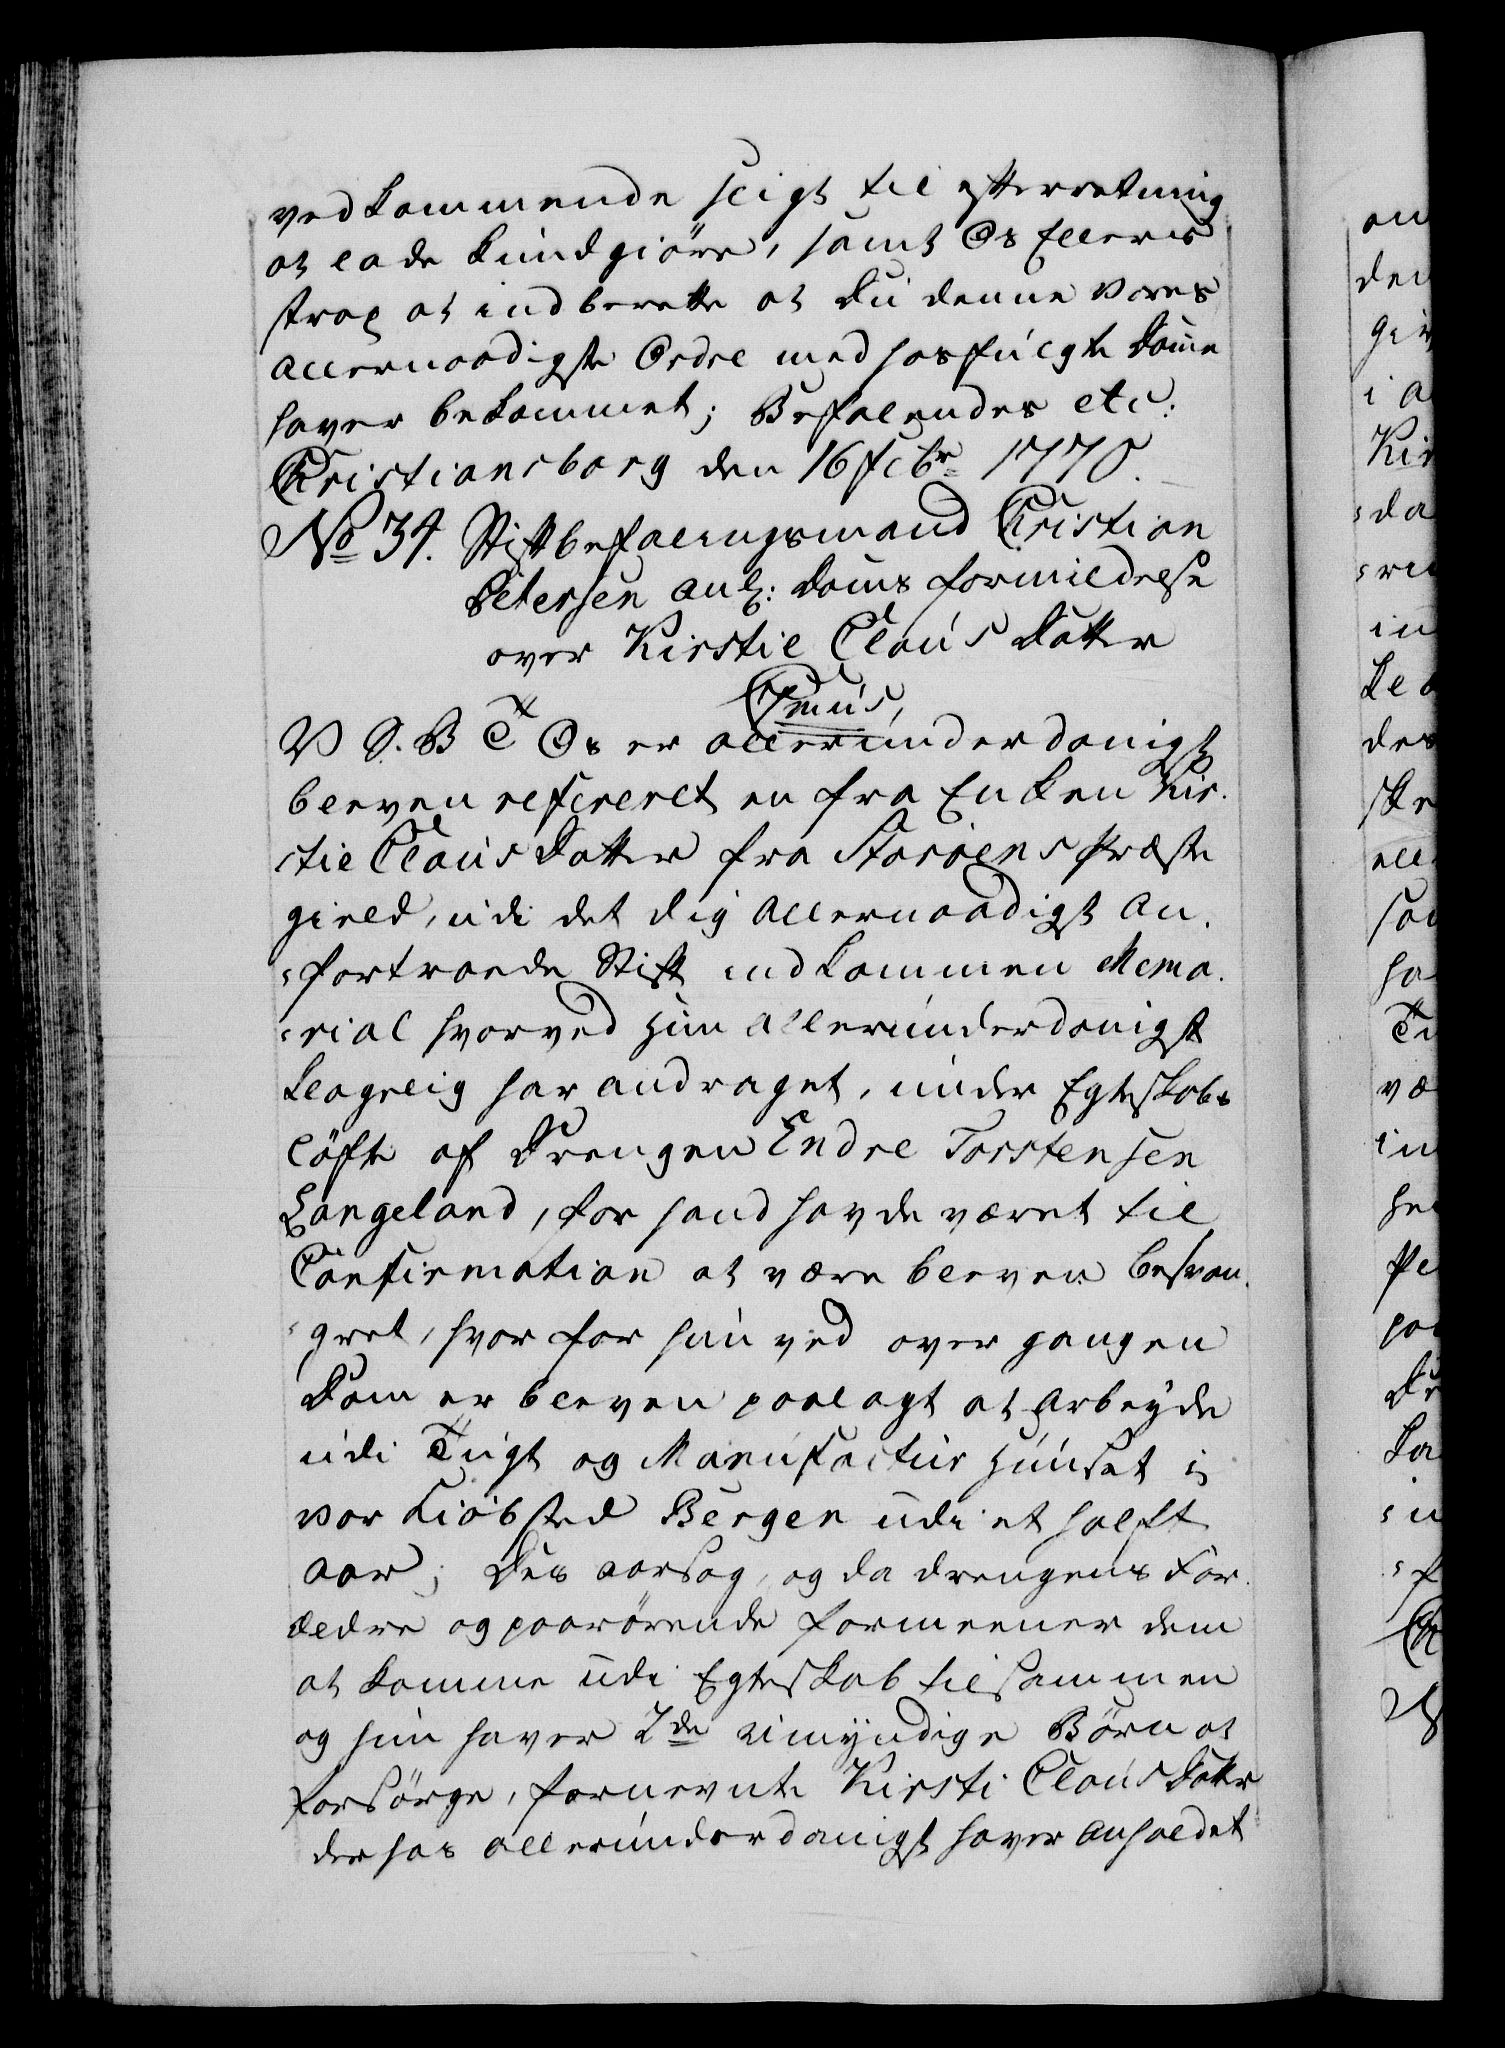 vedkommende sligt til efterretning
at lade kundgiöre, samt Os Allerun¬
strax at indberette at Du denne Vores
allernaadigste Ordre med hosfulgte Dom
haver bekommet; Befalendes etc:
Christiansborg den 16 Febr 1770.
No 34. Stiftbefalingsmand Christian
Petersen anl: Doms formildelse
over Kirstie Claus Datter
Cmus,
V G. B T Os er allerunderdanigst
bleven refereret en fra Enken Kir-
stie Claus Datter fra Storöens Præste
gield, udi det dig allernaadigst an-
-fortroede Stift indkommen Memo-
-rial hvorved hun allerunderdanigst
klagelig har andraget, under Egteskabs
löfte af Drengen Endre Torstensen
Langeland, for hand havde været til
Confirmation at være bleven besvan-
-gret, hvor for hun ved over gangen
Dom er bleven paalagt at arbeyde
udi Tugt og Manufactur Huuset i
vor Kiöbsted Bergen udi et halft
aar; Des aarsag, og da drengens For-
ældre og paarörende formeener dem
at komme udi Egteskab tilsammen
og hun haver 2de umyndige Börn at
forsörge, fornevnte Kirsti Claus Datter
derhos allerunderdanigst haver anholdet